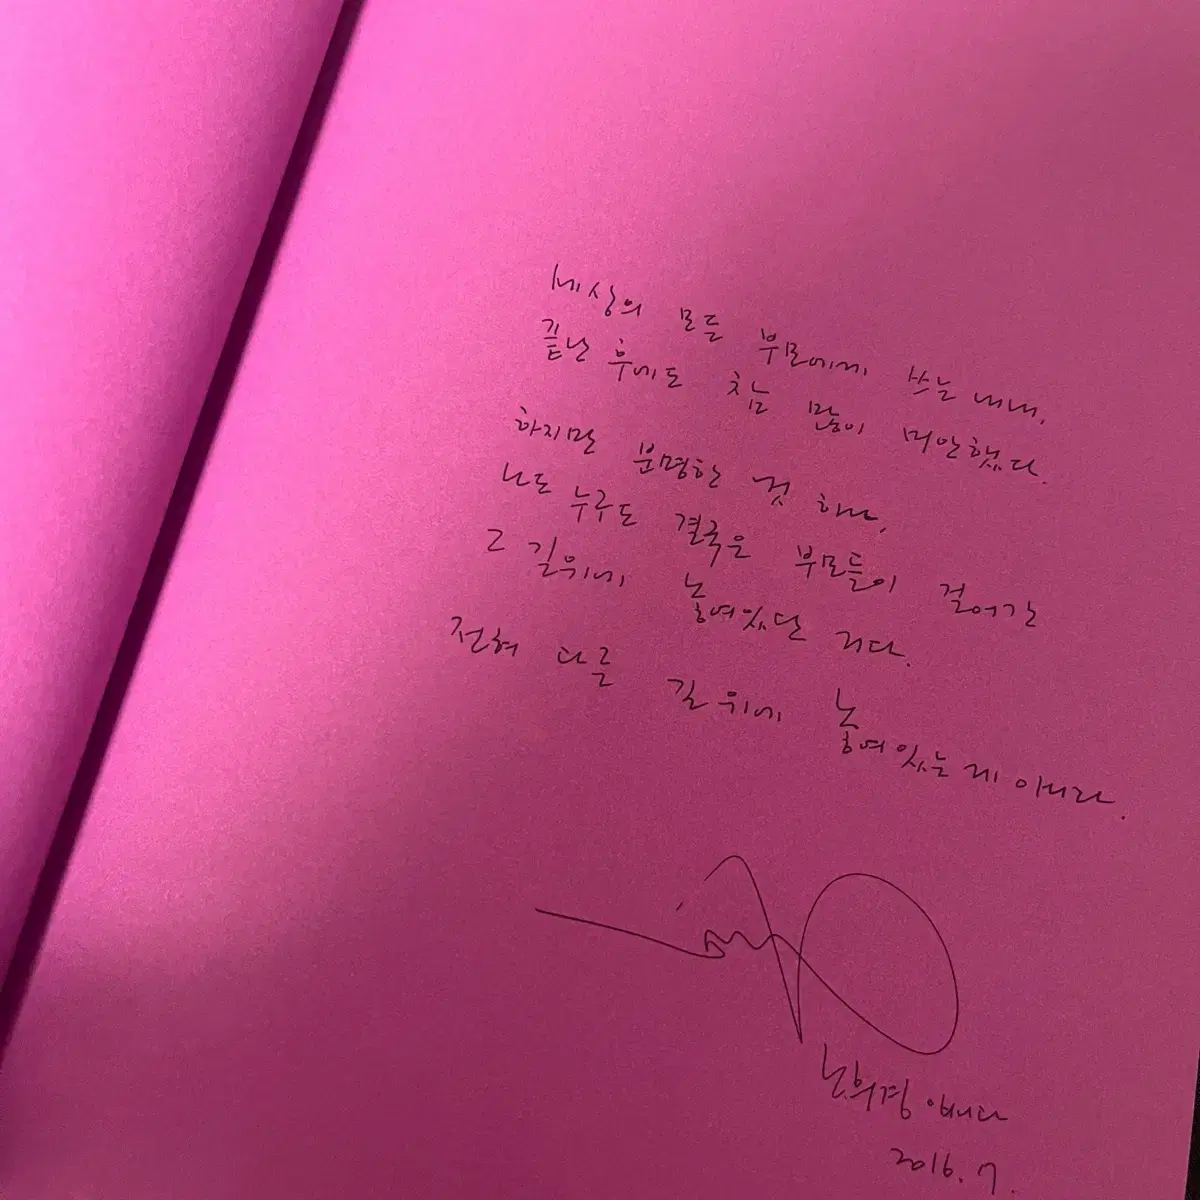 세상의 모든 부모에게 쓰는 내내,
끝난 후에도 참 많이 미안했다.
하지만 분명한 것 하나,
나도 누구도 결국은 부모들이 걸어간
그 길위에 놓여있단 거다.
전혀 다른 길 위에 놓여있는게 아니라.
노희경 입니다
2016.7.